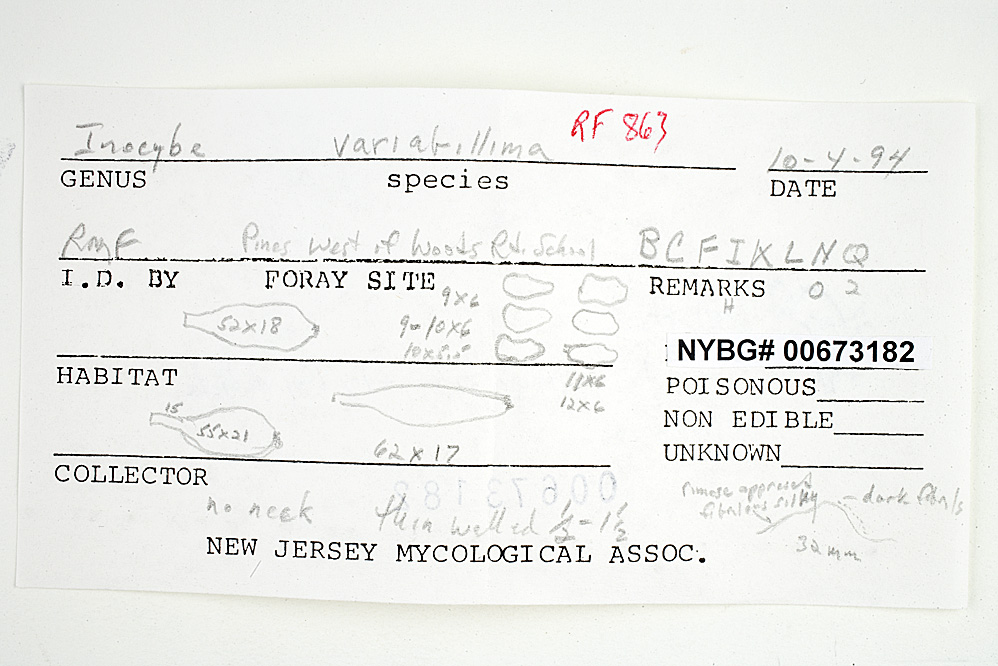 RF 863
Inocybe variabillima 10-4-94
GENUS species DATE
RMF Pines West of Woods Rd. School BCFIKLNQ
I.D. BY FORAY SITE REMARKS O 2
H
9x6
52x18 9-10x6
10x5.5
NYBG# 00673182
HABITAT 11x6 POISONOUS
12x6
15 NON EDIBLE
55x21
62x17 UNKNOWN
COLLECTOR
rimose appressed
no neck thin walled ½-1½ fibrillose silky dark fibrils
32 mm
NEW JERSEY MYCOLOGICAL ASSOC.